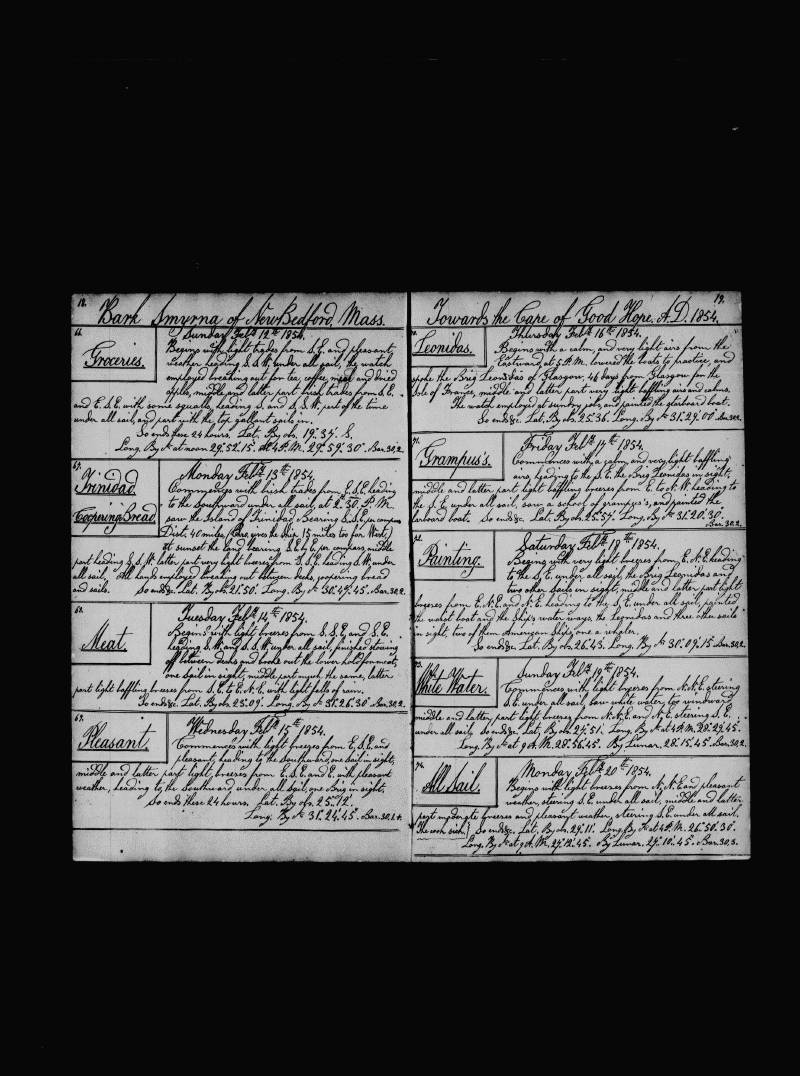 18.
Bark Smyrna of New Bedford, Mass.
66.
Groceries.
Sunday Feb. 12th 1854.
Begins with light trades from S.E. and pleasant
weather heading S.S.W. under all sail, the watch
employed breaking out for tea, coffee, meal and dried
apples, middle and latter part brisk trades from S.E.
and E.S.E. with some squalls, heading S. and S.S.W. part of the time
under all sail, and part with the top gallant sails in.
So ends these 24 hours. Lat. By obs. 19.°37.' S.
Long. By Ac at noon 29.°52.'15." At 4 P.M. 29.°59.'30." Bar. 30,2.
67.
Trinidad.
Coopering Bread.
Monday Feb. 13th 1854.
Commences with brisk trades from E.S.E. heading
to the Southward under all sail, at 2.30. P.M.
saw the Island of Trinidad Bearing S.S.E. per compass
Dist. 40 miles,
at sunset the land bearing S.E. by E. per compass, middle
part heading S.S.W. latter part very light breezes from S.S.E. heading S.W. under
all sail, All hands employed breaking out between decks, coopering bread
and sails. So ends &c. Lat. By obs. 21.°50.' Long. By Ac 30.°49.'45." Bar. 30,2.
68.
Meat.
Tuesday Feb. 14th 1854.
Begins with light breezes from S.S.E. and S.E.
heading S.W. and S.S.W. under all sail, finished stowing
off between decks and broke out the lower hold for meat,
one sail in sight, middle part much the same, latter
part light baffling breezes from S.E. to E.N.E. with light falls of rain.
So ends &c. Lat. By obs. 23.°09.' Long. By Ac 31.°26.'30." Bar. 30,2.
69.
Pleasant.
Wednesday Feb. 15th 1854.
Commences with light breezes from E.S.E. and
pleasant, heading to the Southward, one Sail in sight,
middle and latter part light breezes from E.S.E. and E. with pleasant
weather, heading to the Southward under all sail, one Brig in sight.
So ends these 24 hours, Lat. By obs. 25.°12.'
Long. By Ac 31.°24.'45." Bar. 30,2+.
19.
Towards the Cape of Good Hope. A.D. 1854.
70.
Leonidas.
Thursday Feb. 16th 1854.
Begins with a calm, and very light airs from the
Eastward, at 5 P.M. lowered the boats to practice, and
spoke the Brig Leonidas of Glasgow, 46 days from Glasgow for the
Isle of France, middle and latter part very light baffling airs and calms.
The watch employed at sundry jobs, and painted the starboard boat.
So ends &c. Lat. By obs. 25.°36.' Long. By Ac 31.°29.'00." Bar. 30,2.
71.
Grampus's.
Friday Feb. 17th 1854.
Commences with a calm and very light baffling
airs, heading to the S.E. the Brig Leonidas in sight,
middle and latter part light baffling breezes from E. to N.W. heading to
the S.E. under all sail, saw a school of grampus's, and painted the
larboard boat. So ends &c. Lat. By obs. 25.°57.' Long. By Ac 31.°20.'30."
Bar. 30,2.
72.
Painting.
Saturday Feb. 18th 1854.
Begins with very light breezes from E.N.E. heading
to the S.E. under all sail, the Brig Leonidas and
two other Sails in sight, middle and latter part light
breezes from E.N.E. and N.E. heading to the S.E. under all sail, painted
the waist boat and the Ships water ways, the Leonidas and three other sails
in sight, two of them American Ships, one a whaler.
So ends &c. Lat. By obs. 26.°43.' Long. By Ac 30.°09.'15." Bar. 30,2.
73.
White Water.
Sunday Feb. 19th 1854.
Commences with light breezes from N.N.E. steering
S.E. under all sail, saw white water too windward
middle and latter part light breezes from N.N.E. and N.E. steering S.E.
under all sail, So ends &c. Lat. By obs. 27.°51.' Long. By Ac at 4 P.M. 28.°29.'45."
Long. By Ac at 9 A.M. 28.°56.'45." By Lunar. 28.°15.'45." Bar. 30,2.
74.
All Sail.
Monday Feb. 20th 1854.
Begins with light breezes from N.N.E. and pleasant
weather, steering S.E. under all sail, middle and latter
part moderate breezes and pleasant weather, steering S.E. under all sail.
(The cook sick.) So ends &c. Lat. By obs. 29.°11.' Long. By Ac at 4 P.M. 26.°50.'30."
Long. By Ac at 9 A.M. 27.°12.'45." By Lunar. 27.°10.'45." Bar. 30,3.